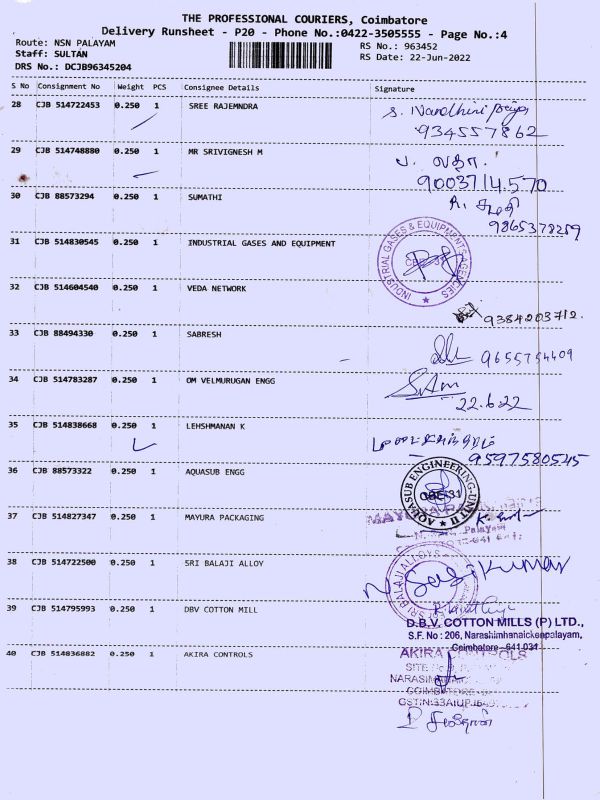 THE PROFESSIONAL COURIERS, Coimbatore
Delivery Runsheet - P20 - Phone No.:0422-3505555 - Page No.:4
Route: NSN PALAYAM
Staff: SULTAN
DRS No.: DCJB96345204
RS No.: 963452
RS Date: 22-Jun-2022
S No Consignment No Weight PCS Consignee Details Signature
28 CJB 514722453 0.250 1 SREE RAJEMNDRA
S. Nandhini Priya
934557862
29 CJB 514748880 0.250 1 MR SRIVIGNESH M
9003714570
30 CJB 88573294 0.250 1 SUMATHI
9865378259
31 CJB 514830545 0.250 1 INDUSTRIAL GASES AND EQUIPMENT
INDUSTRIAL GASES & EQUIPMENTS AGENCIES
32 CJB 514604540 0.250 1 VEDA NETWORK
9384203712.
33 CJB 88494330 0.250 1 SABRESH
9655754409
34 CJB 514783287 0.250 1 OM VELMURUGAN ENGG
22.6.22
35 CJB 514838668 0.250 1 LEHSHMANAN K
9597580545
36 CJB 88573322 0.250 1 AQUASUB ENGG
AQUASUB ENGINEERING-UNIT II
CBE-31
37 CJB 514827347 0.250 1 MAYURA PACKAGING
38 CJB 514722500 0.250 1 SRI BALAJI ALLOY
SRI BALAJI ALLOYS
N. Sasikumar
39 CJB 514795993 0.250 1 DBV COTTON MILL
D.B.V. COTTON MILLS (P) LTD.,
S.F. No : 206, Narashimhanaickenpalayam,
Coimbatore - 641 031
40 CJB 514836882 0.250 1 AKIRA CONTROLS
AKIRA CONTROLS